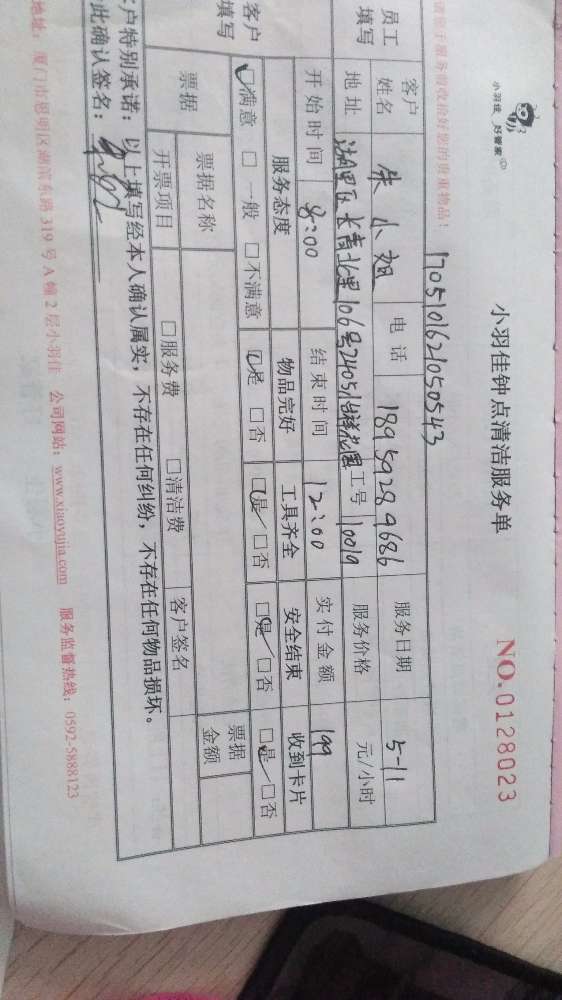 小羽佳 好管家
小羽佳钟点清洁服务单
NO.0128023
服务前收拾好您的贵重物品!
1705101621050543
员工填写
客户姓名 朱小姐 电话 18959289686 服务日期 5-11
地址 湖里区长青北里106号2405 祥花园 工号 10019 服务价格 元/小时
开始时间 8:00 结束时间 12:00 实付金额 199
客户填写
服务态度 物品完好 工具齐全 安全结束 收到卡片
☑满意 □一般 □不满意 ☑是 □否 ☑是 □否 ☑是 □否 ☑是 □否
票据 票据名称 票据金额
开票项目 □服务费 □清洁费 客户签名
户特别承诺:以上填写经本人确认属实,不存在任何纠纷,不存在任何物品损坏。
此确认签名:
地址:厦门市思明区湖滨东路319号A幢2层小羽佳 公司网站:www.xiaoyujia.com 服务监督热线:0592-5888123